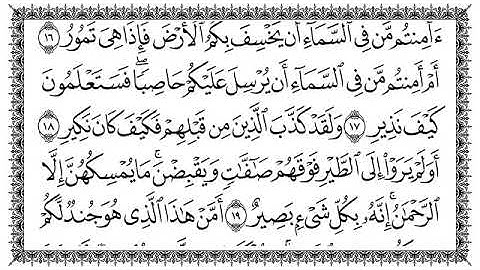 ءَأَمِنتُم مَّن فِى ٱلسَّمَآءِ أَن يَخْسِفَ بِكُمُ ٱلْأَرْضَ فَإِذَا هِىَ تَمُورُ ١٦
أَمْ أَمِنتُم مَّن فِى ٱلسَّمَآءِ أَن يُرْسِلَ عَلَيْكُمْ حَاصِبًا ۖ فَسَتَعْلَمُونَ
كَيْفَ نَذِيرِ ١٧ وَلَقَدْ كَذَّبَ ٱلَّذِينَ مِن قَبْلِهِمْ فَكَيْفَ كَانَ نَكِيرِ ١٨
أَوَلَمْ يَرَوْا۟ إِلَى ٱلطَّيْرِ فَوْقَهُمْ صَـٰٓفَّـٰتٍ وَيَقْبِضْنَ ۚ مَا يُمْسِكُهُنَّ إِلَّا
ٱلرَّحْمَـٰنُ ۚ إِنَّهُۥ بِكُلِّ شَىْءٍۭ بَصِيرٌ ١٩ أَمَّنْ هَـٰذَا ٱلَّذِى هُوَ جُندٌ لَّكُمْ